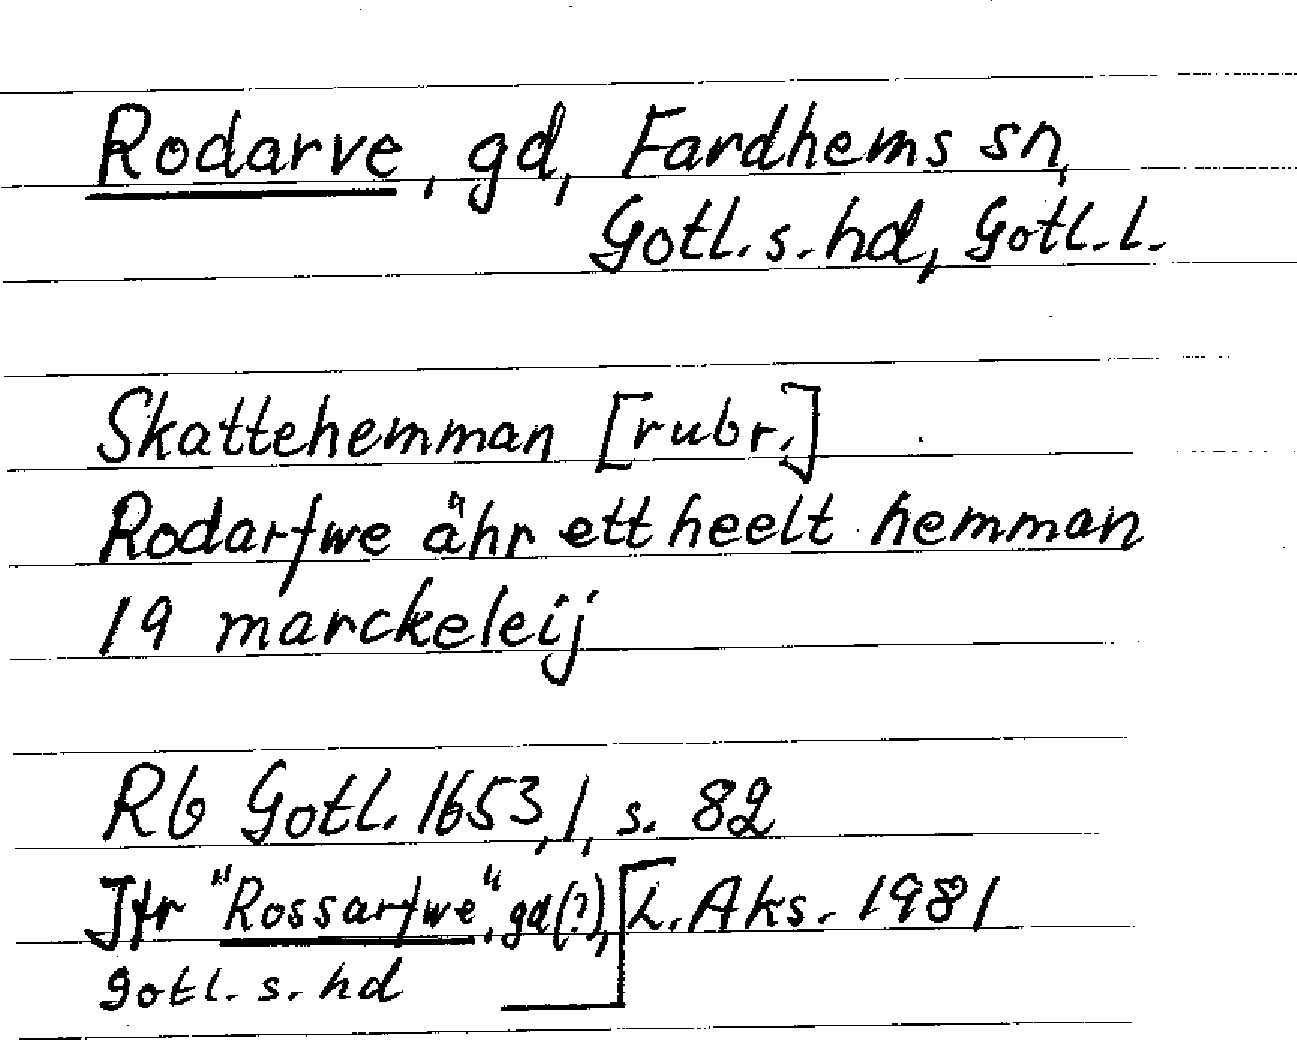 Rodarve, gd, Fardhems sn,
Gotl. s. hd, Gotl. l.
Skattehemman [rubr.]
Rodarfwe ähr ett heelt hemman
19 marckeleij
Rb Gotl. 1653, 1, s. 82
Jfr "Rossarfwe", gd(?), L. Aks. 1981
Gotl. s. hd